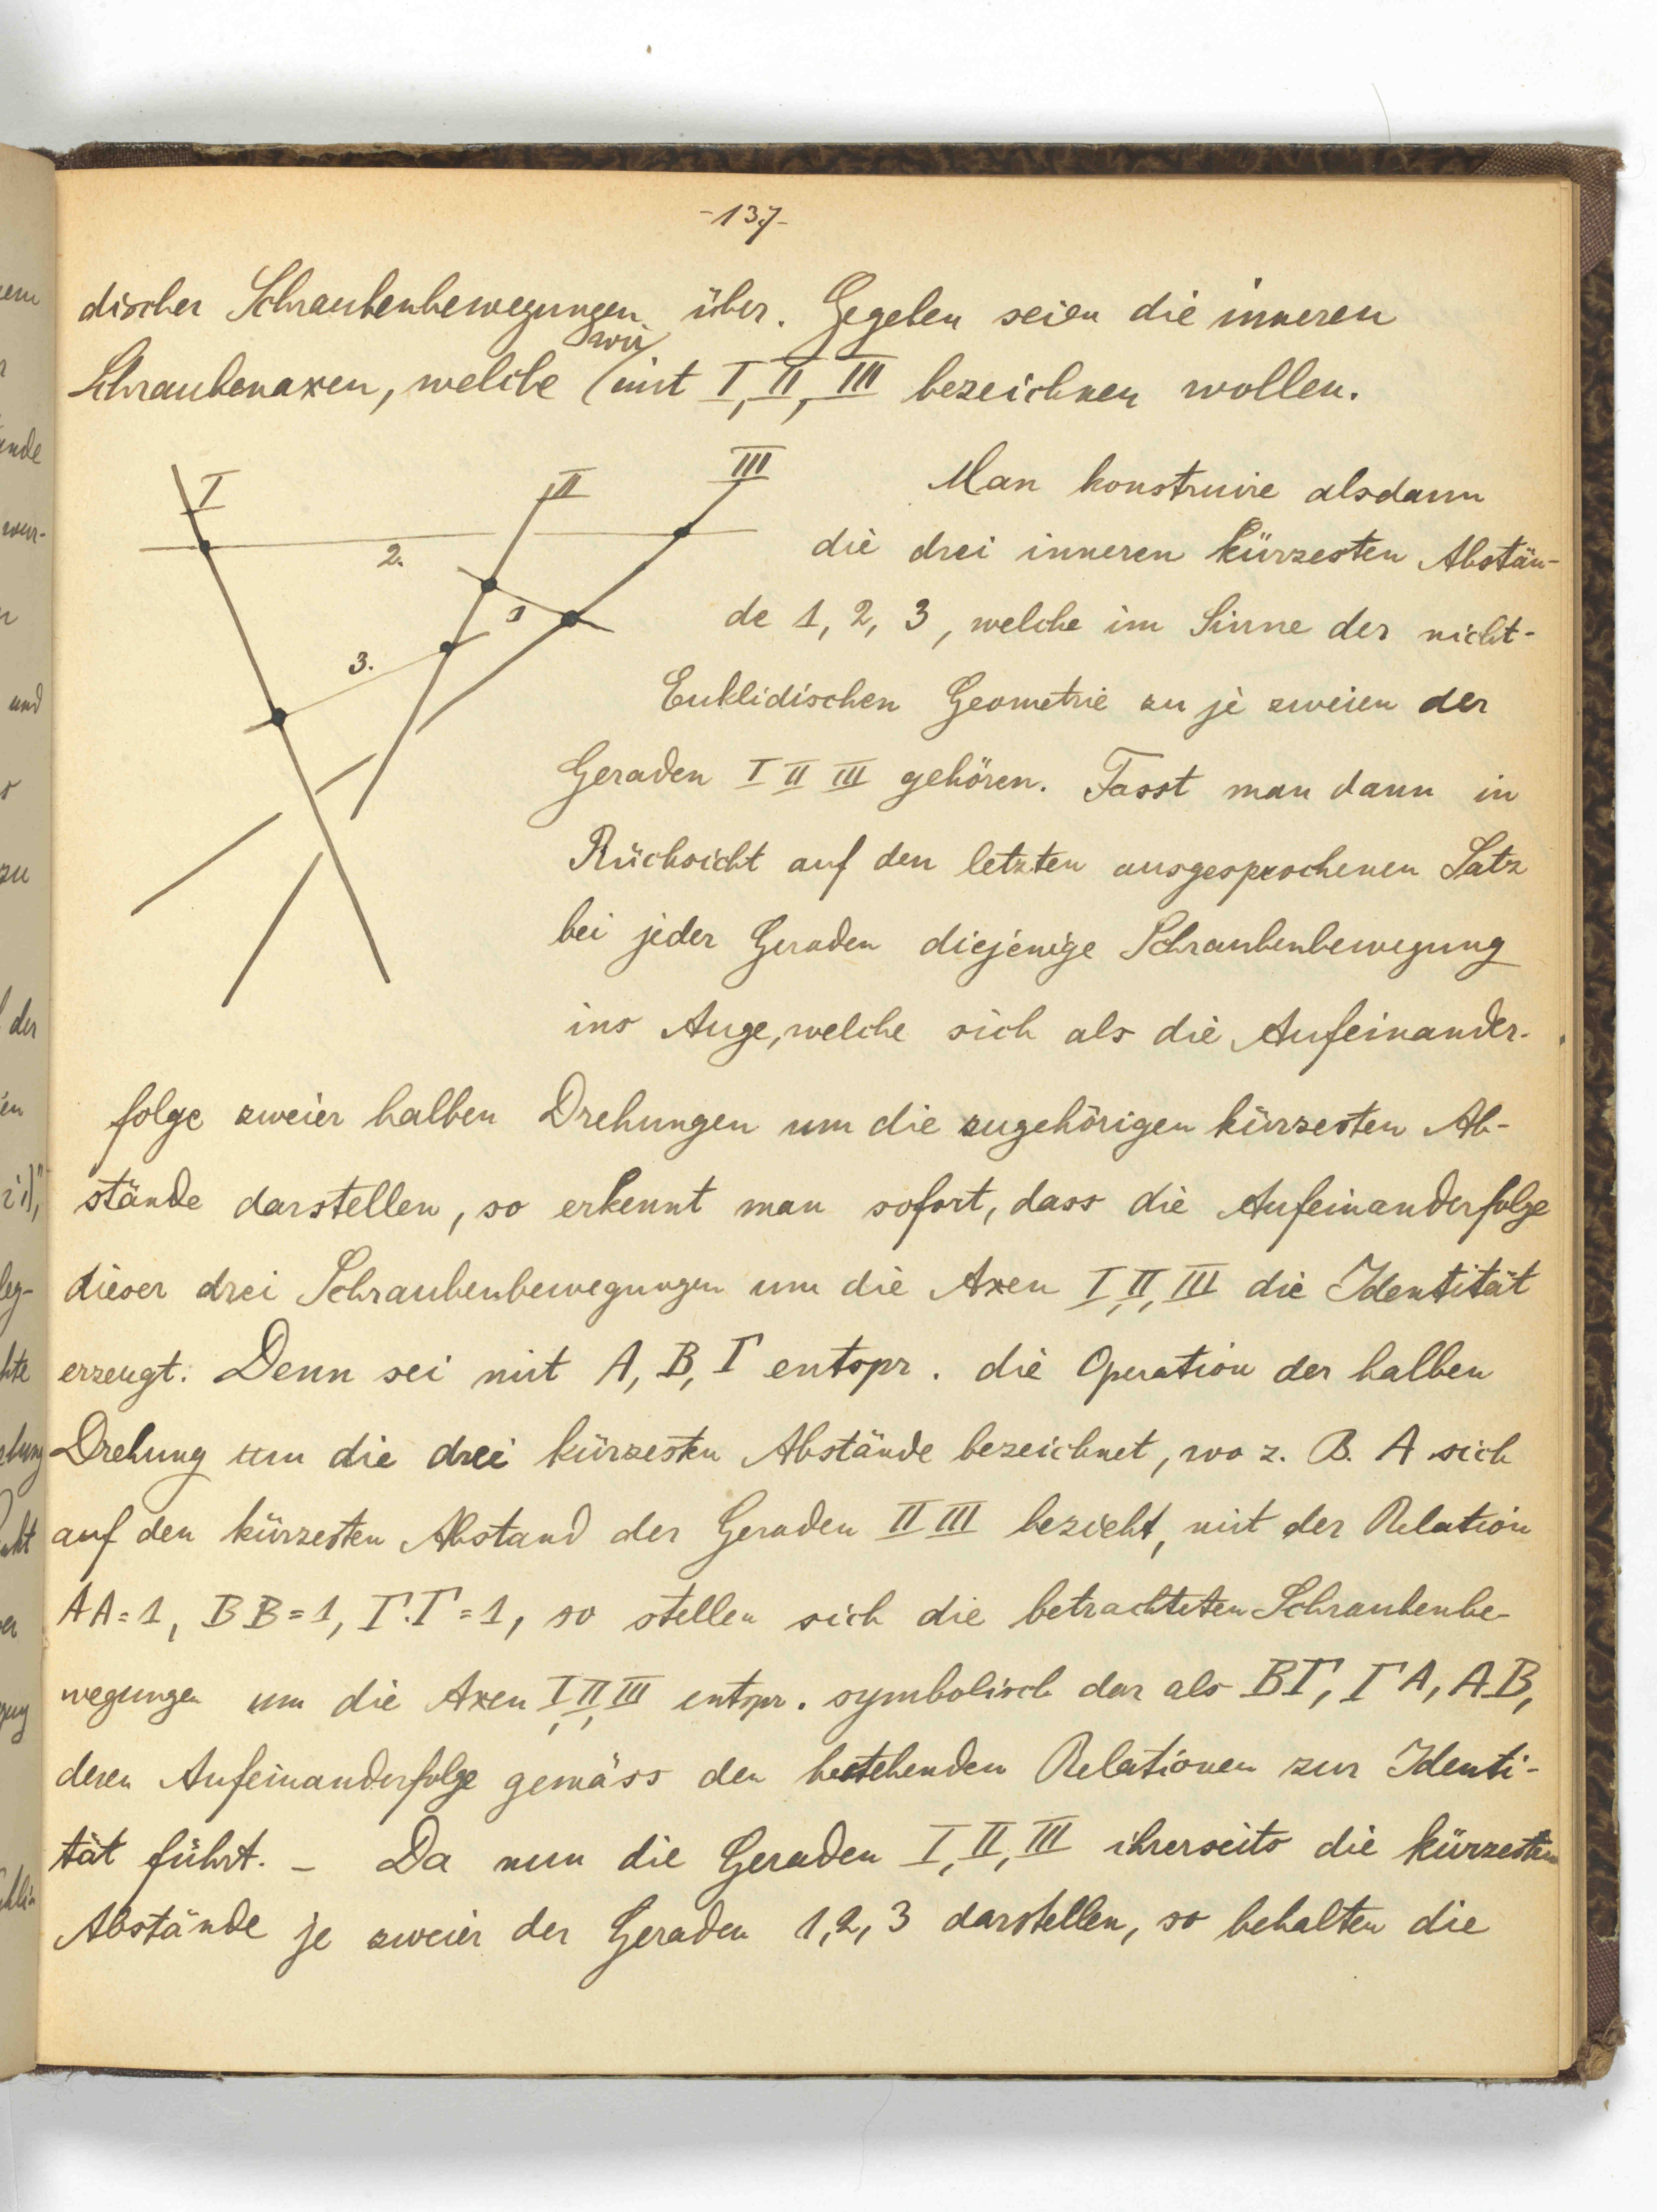 -137-
discher Schraubenbewegungen über. Gegeben seien die inneren
wir
Schraubenaxen, welche (mit I, II, III bezeichnen wollen.
I
II
III
2.
1
3.
Man konstruire alsdann
die drei inneren kürzesten Abstän-
de 1, 2, 3, welche im Sinne der nicht-
Euklidischen Geometrie zu je zweien der
Geraden I II III gehören. Fasst man dann in
Rücksicht auf den letzten ausgesprochenen Satz
bei jeder Geraden diejenige Schraubenbewegung
ins Auge, welche sich als die Aufeinander-
folge zweier halben Drehungen um die zugehörigen kürzesten Ab-
stände darstellen, so erkennt man sofort, dass die Aufeinanderfolge
dieser drei Schraubenbewegungen um die Axen I, II, III die Identität
erzeugt. Denn sei mit A, B, Γ entspr. die Operation der halben
Drehung um die drei kürzesten Abstände bezeichnet, wo z. B. A sich
auf den kürzesten Abstand der Geraden II III bezieht, mit der Relation
AA=1, BB=1, Γ.Γ=1, so stellen sich die betrachteten Schraubenbe-
wegungen um die Axen I, II, III entspr. symbolisch dar als BΓ, ΓA, AB,
deren Aufeinanderfolge gemäss den bestehenden Relationen zur Identi-
tät führt. - Da nun die Geraden I, II, III ihrerseits die kürzesten
Abstände je zweier der Geraden 1, 2, 3 darstellen, so behalten die